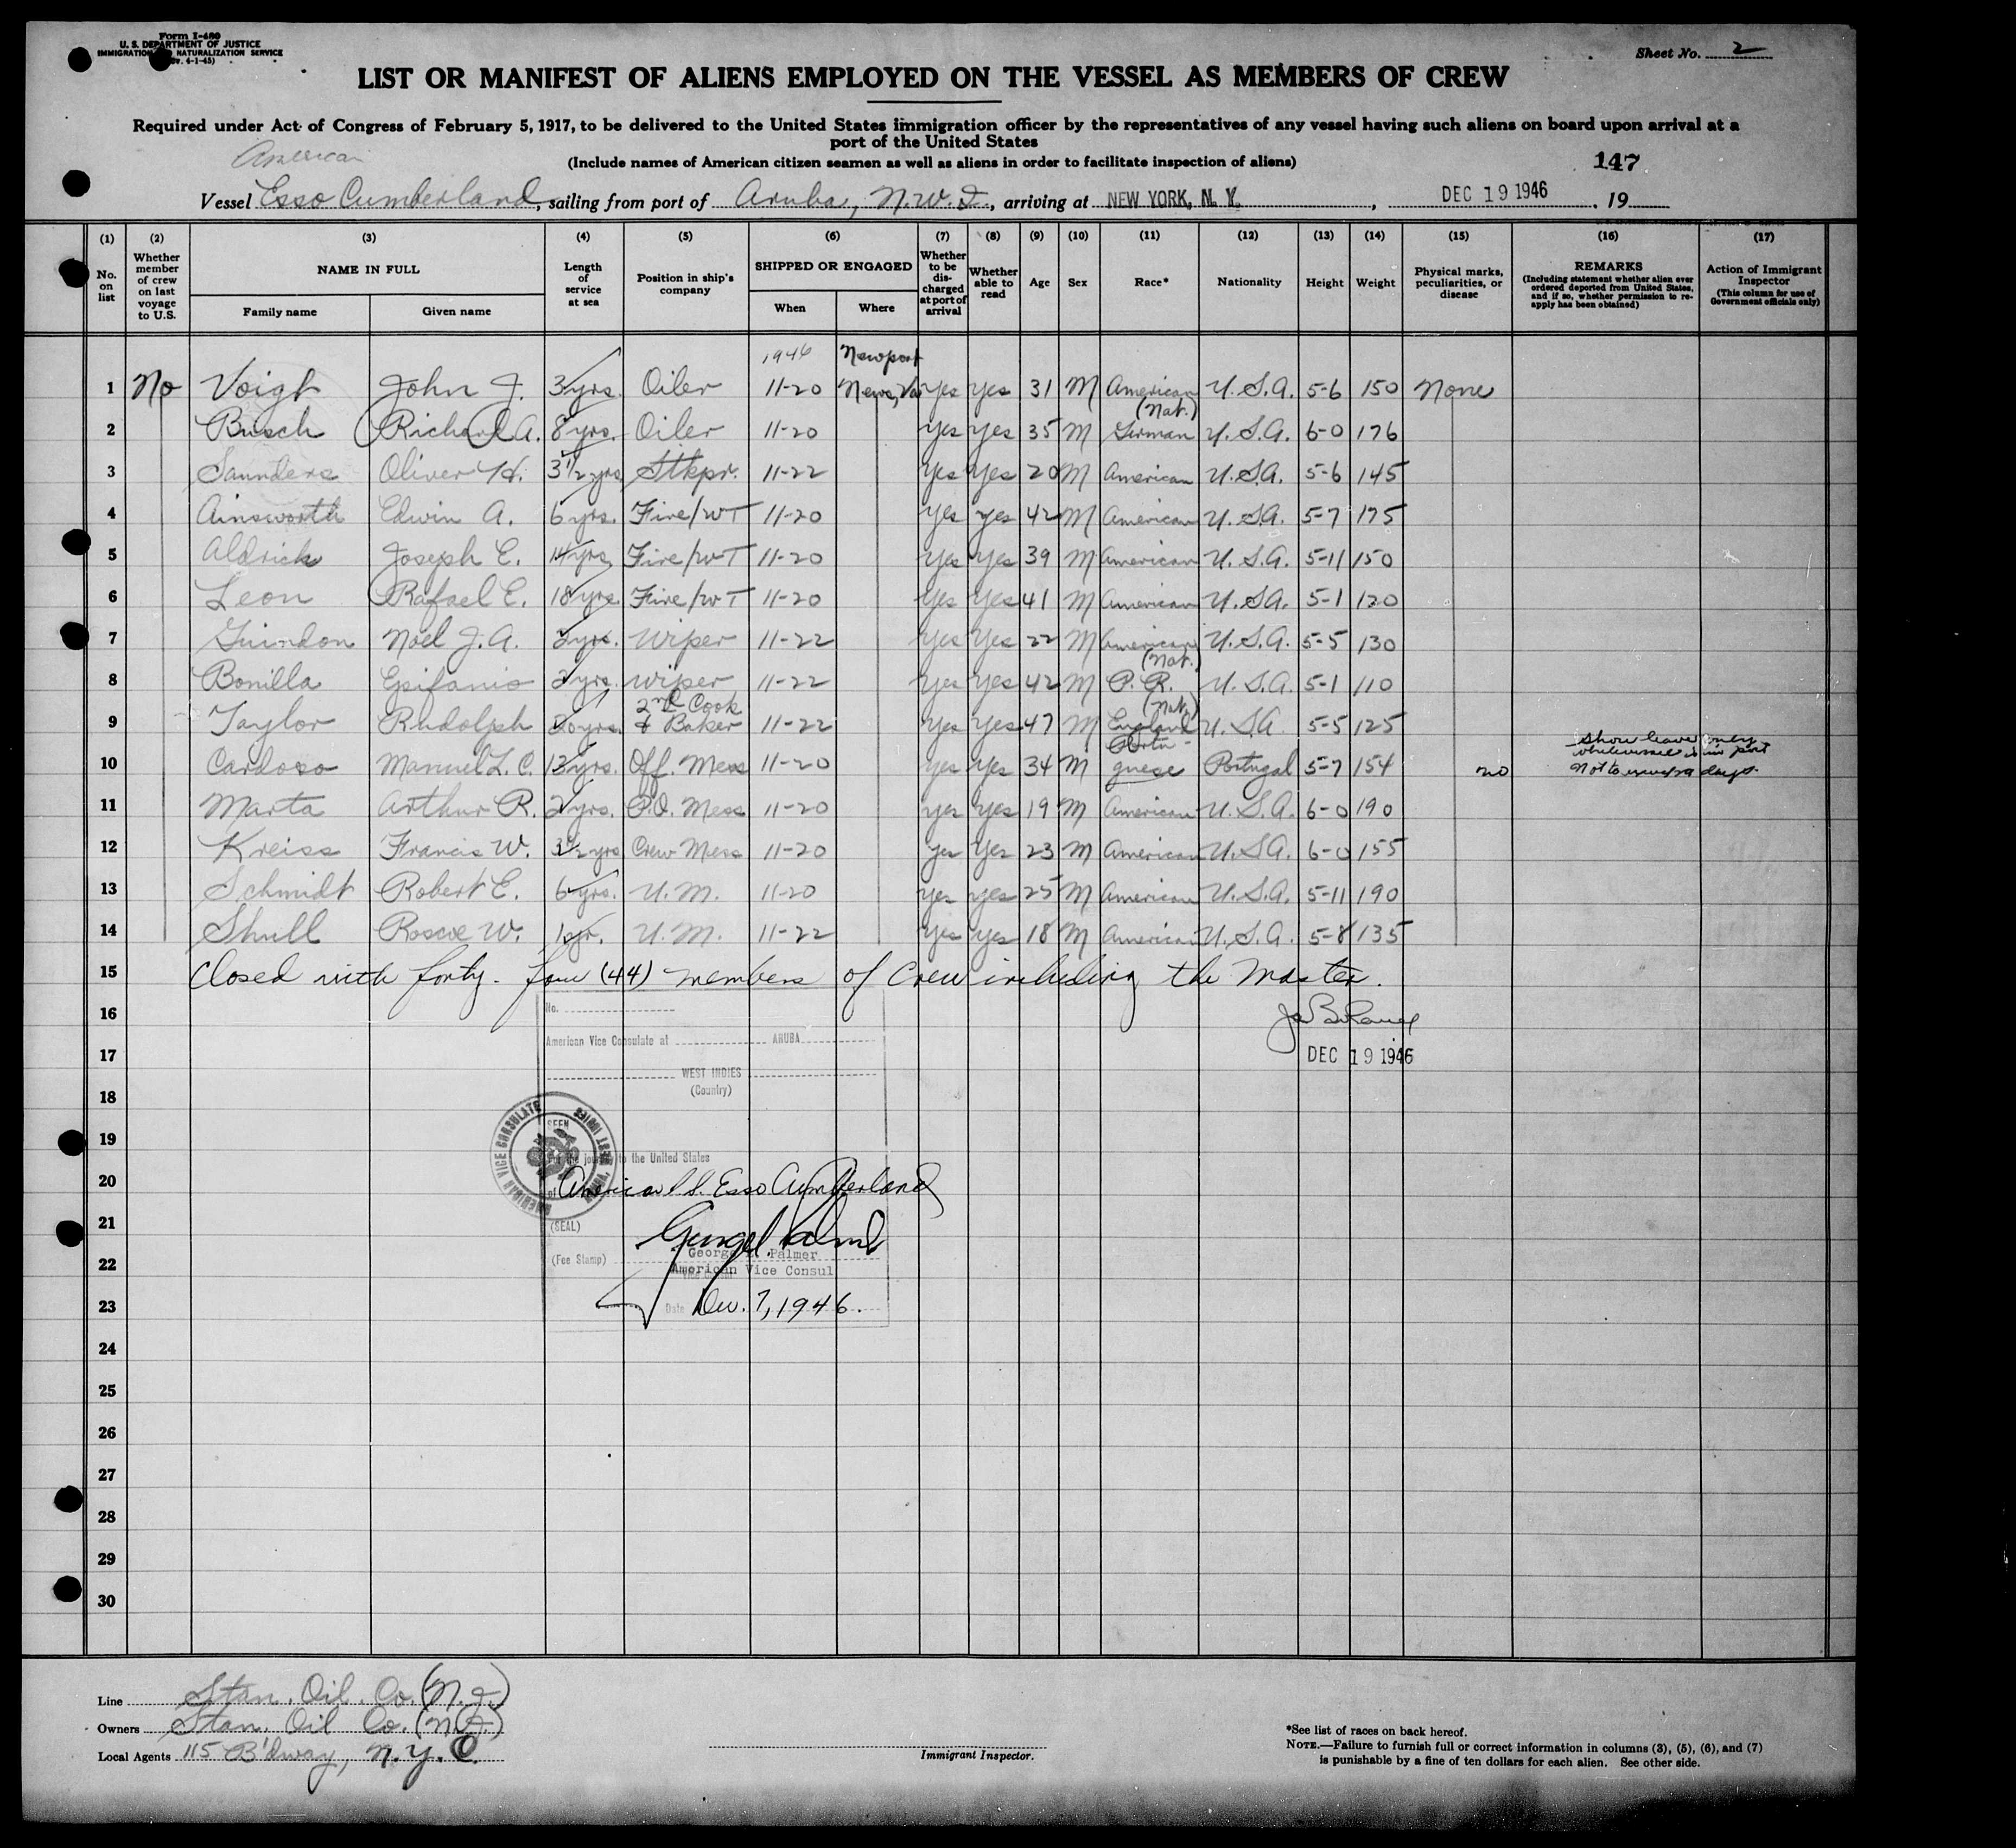 Form I-480
U. S. DEPARTMENT OF JUSTICE
IMMIGRATION NATURALIZATION SERVICE
4-1-45)
Sheet No. 2
LIST OR MANIFEST OF ALIENS EMPLOYED ON THE VESSEL AS MEMBERS OF CREW
Required under Act of Congress of February 5, 1917, to be delivered to the United States immigration officer by the representatives of any vessel having such aliens on board upon arrival at a
port of the United States
(Include names of American citizen seamen as well as aliens in order to facilitate inspection of aliens)
147
American
Vessel Esso Cumberland, sailing from port of Aruba, N.W.I., arriving at NEW YORK, N. Y., DEC 19 1946, 19
(1) No. on list
(2) Whether member of crew on last voyage to U.S.
(3) NAME IN FULL Family name Given name
(4) Length of service at sea
(5) Position in ship's company
(6) SHIPPED OR ENGAGED When Where
(7) Whether to be discharged at port of arrival
(8) Whether able to read
(9) Age
(10) Sex
(11) Race*
(12) Nationality
(13) Height
(14) Weight
(15) Physical marks, peculiarities, or disease
(16) REMARKS (Including statement whether alien ever ordered deported from United States, and if so, whether permission to reapply has been obtained)
(17) Action of Immigrant Inspector (This column for use of Government officials only)
1946 Newport
1 No Voigt John J. 3 yrs. Oiler 11-20 News, Va Yes Yes 31 M American U.S.A. 5-6 150 None
2 Busch Richard A. 8 yrs. Oiler 11-20 Yes Yes 35 M (Nat.) German U.S.A. 6-0 176
3 Saunders Oliver H. 3 1/2 yrs Stkpr. 11-22 Yes Yes 20 M American U.S.A. 5-6 145
4 Ainsworth Edwin A. 6 yrs. Fire/WT 11-20 Yes Yes 42 M American U.S.A. 5-7 175
5 Aldrich Joseph E. 14 yrs Fire/WT 11-20 Yes Yes 39 M American U.S.A. 5-11 150
6 Leon Rafael E. 18 yrs Fire/WT 11-20 Yes Yes 41 M American U.S.A. 5-1 120
7 Guindon Noel J.A. yrs. Wiper 11-22 Yes Yes 22 M American U.S.A. 5-5 130
8 Bonilla Epifanio 2 yrs. Wiper 11-22 Yes Yes 42 M (Nat.) P.R. U.S.A. 5-1 110
9 Taylor Rudolph yrs. 2nd Cook & Baker 11-22 Yes Yes 47 M (Nat.) England U.S.A. 5-5 125
10 Cardoso Manuel L. C. 13 yrs. Off. Mess 11-20 Yes Yes 34 M Portuguese Portugal 5-7 154 no Shore leave only while vessel is in port Not to exceed 29 days.
11 Marta Arthur R. 2 yrs. P.O. Mess 11-20 Yes Yes 19 M American U.S.A. 6-0 190
12 Kreiss Francis W. 3 1/2 yrs Crew Mess 11-20 Yes Yes 23 M American U.S.A. 6-0 155
13 Schmidt Robert E. 6 yrs. U.M. 11-20 Yes Yes 25 M American U.S.A. 5-11 190
14 Shull Roscoe W. 1 yr. U.M. 11-22 Yes Yes 18 M American U.S.A. 5-8 135
15 Closed with forty-four (44) members of Crew including the Master.
16
17
18
19
20
21
22
23
24
25
26
27
28
29
30
DEC 19 1946
No.
American Vice Consulate at ARUBA
WEST INDIES
(Country)
AMERICAN VICE CONSULATE
SEEN
For the journey to the United States
of American S.S. Esso Cumberland
(SEAL)
(Fee Stamp)
George Palmer
American Vice Consul
Date Dec. 7, 1946.
Line Stan. Oil Co. (N.J.)
Owners Stan. Oil Co. (N.J.)
Local Agents 115 B'dway, N.Y.C.
Immigrant Inspector.
*See list of races on back hereof.
NOTE.—Failure to furnish full or correct information in columns (3), (5), (6), and (7)
is punishable by a fine of ten dollars for each alien. See other side.